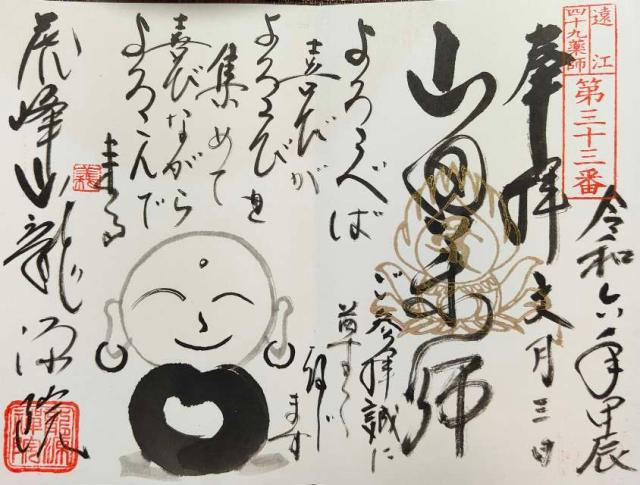 遠江
四十九薬師
第三十三番
令和六年甲辰
文月三日
奉拝
山 薬師
ご参拝誠に
尊く
存じ
ます
よろこべば
喜びが
よろこびを
集めて
喜びながら
よろこんで
来る
峰山龍源院